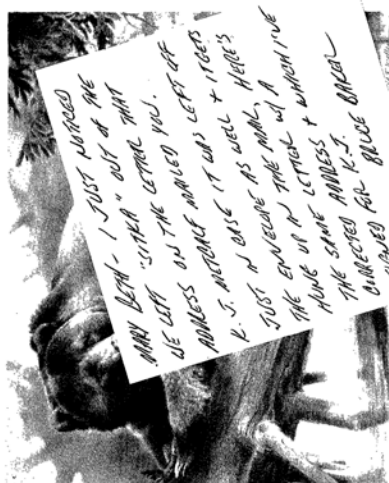 MARY BETH - I JUST NOTICED
WE LEFT "SITKA" OUT OF THE
ADDRESS ON THE LETTER THAT
K.J. METCALF MAILED YOU.
JUST IN CASE IT WAS LEFT OFF
THE ENVELOPE AS WELL & IT GETS
HUNG UP IN THE MAIL, HERE'S
THE SAME LETTER W/ A
CORRECTED ADDRESS & WHICH I'VE
FOR K.J.
BRUCE BAKER